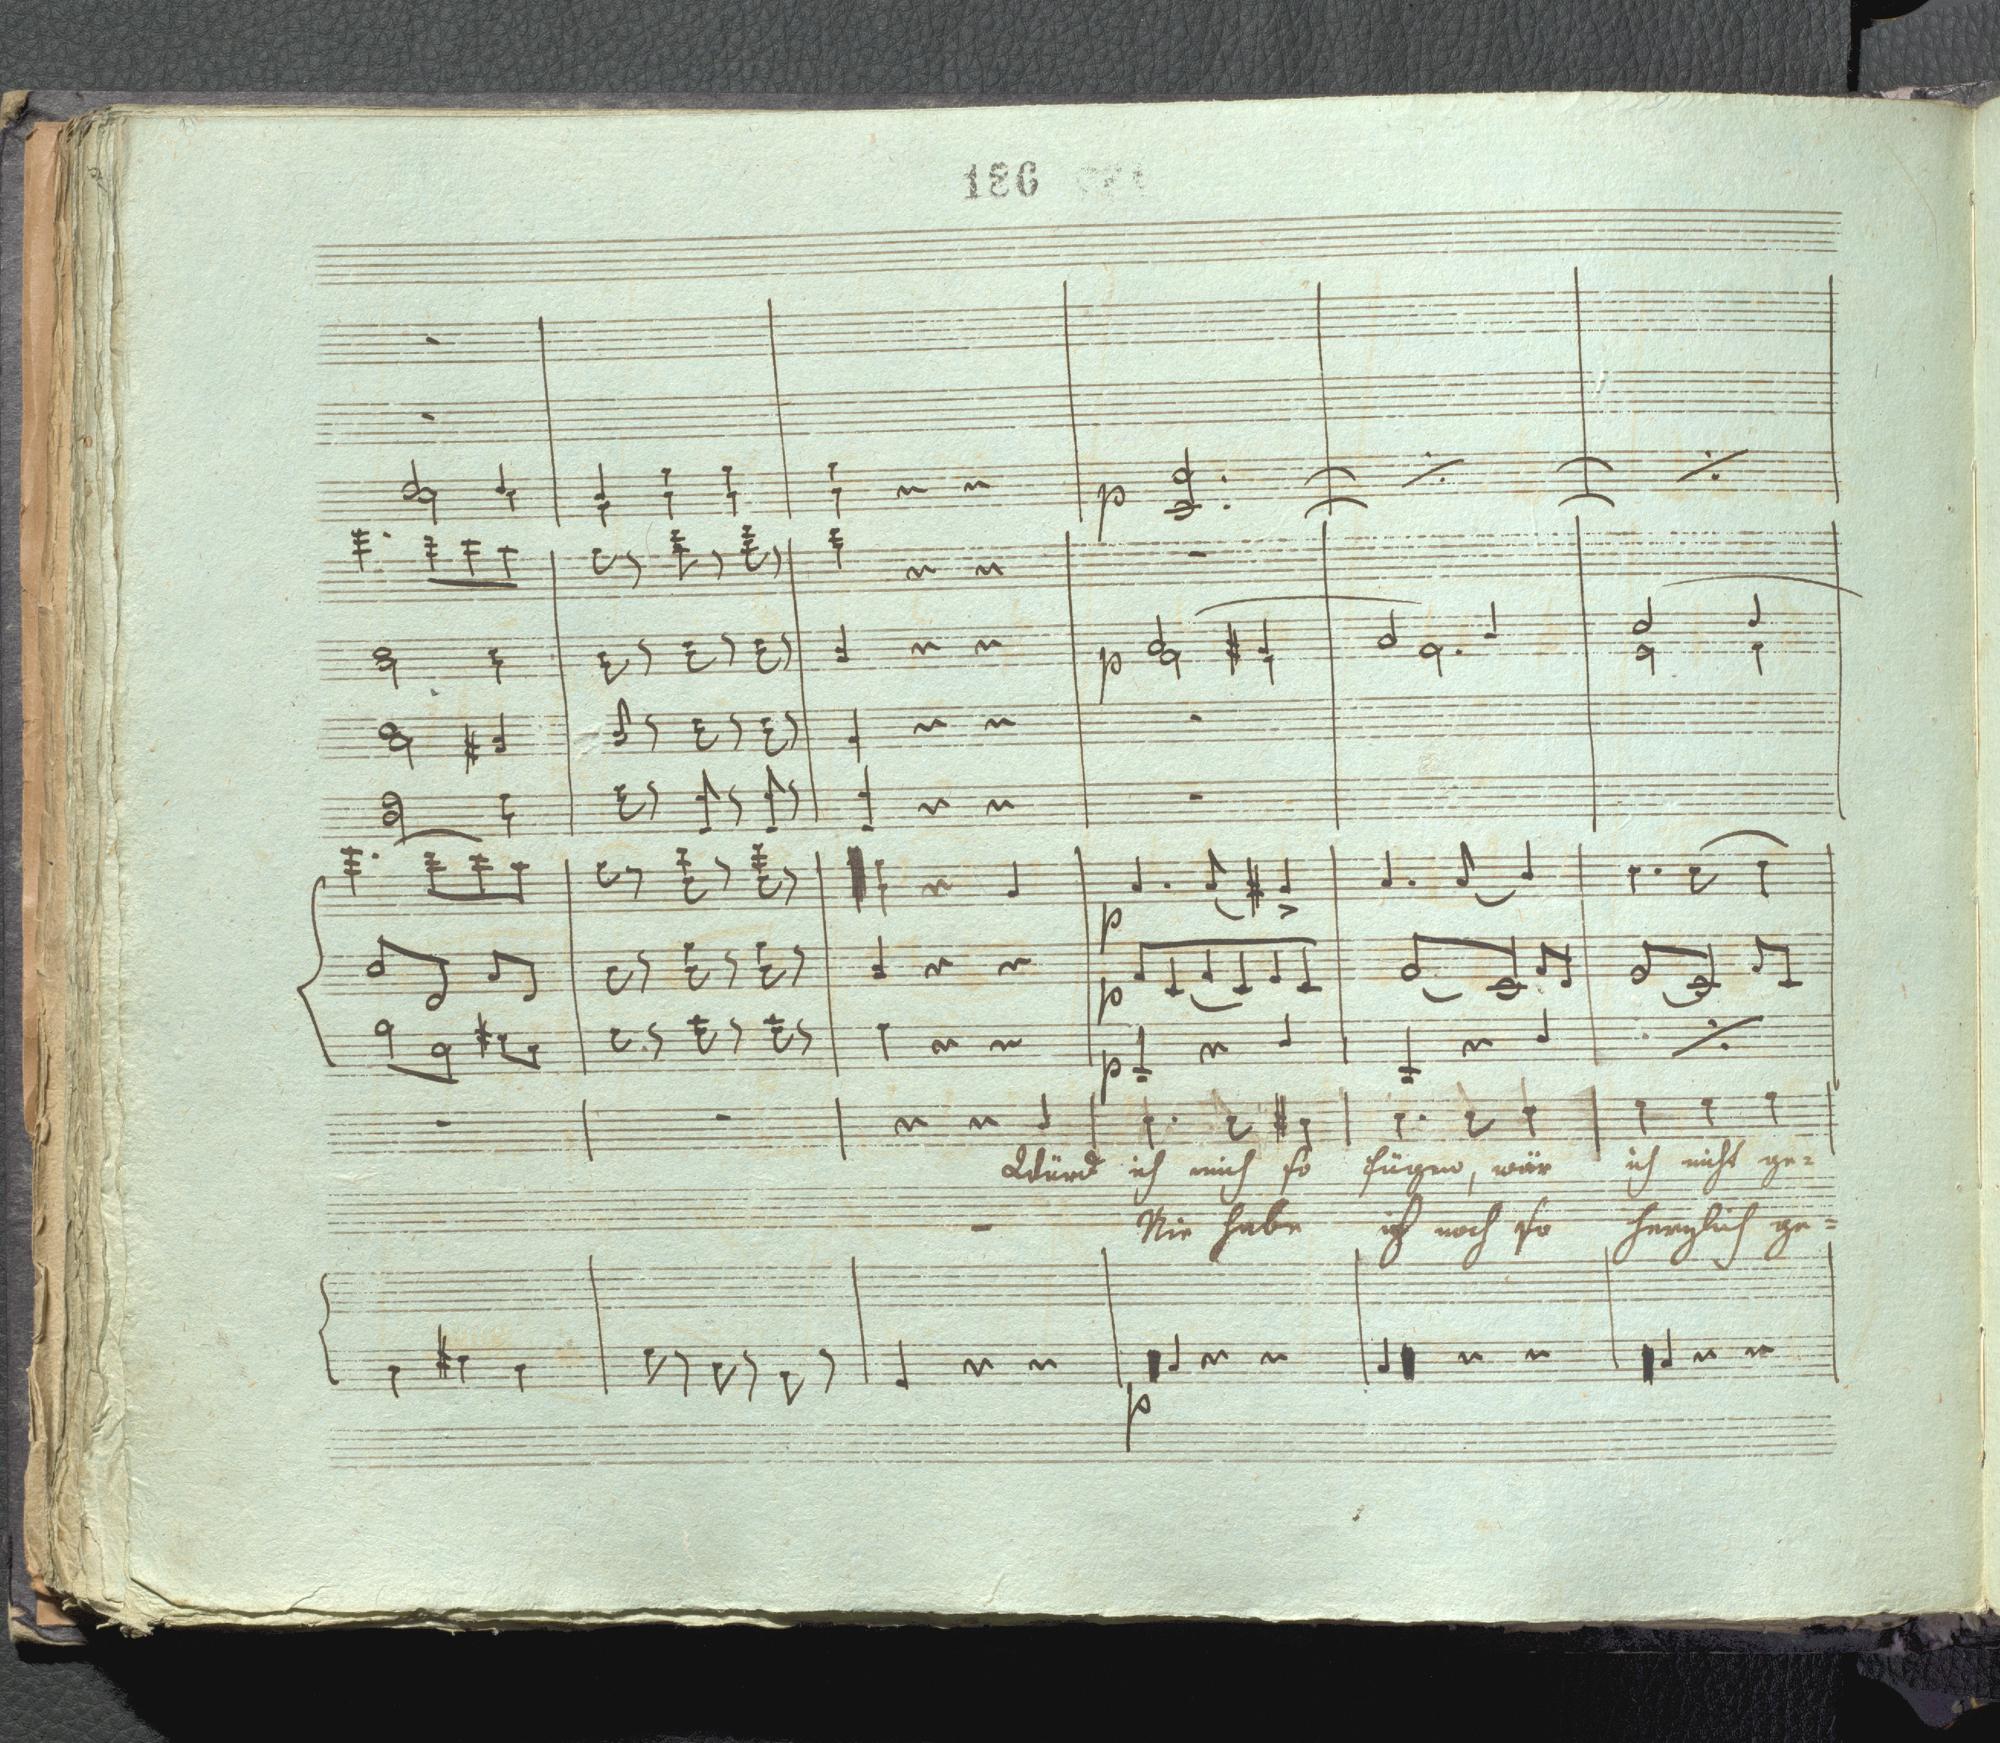 186
p
p
p
p
p
Würd ich mich so fügen, wär ich nicht ge-
Nie habe ich noch so herzlich ge-
p